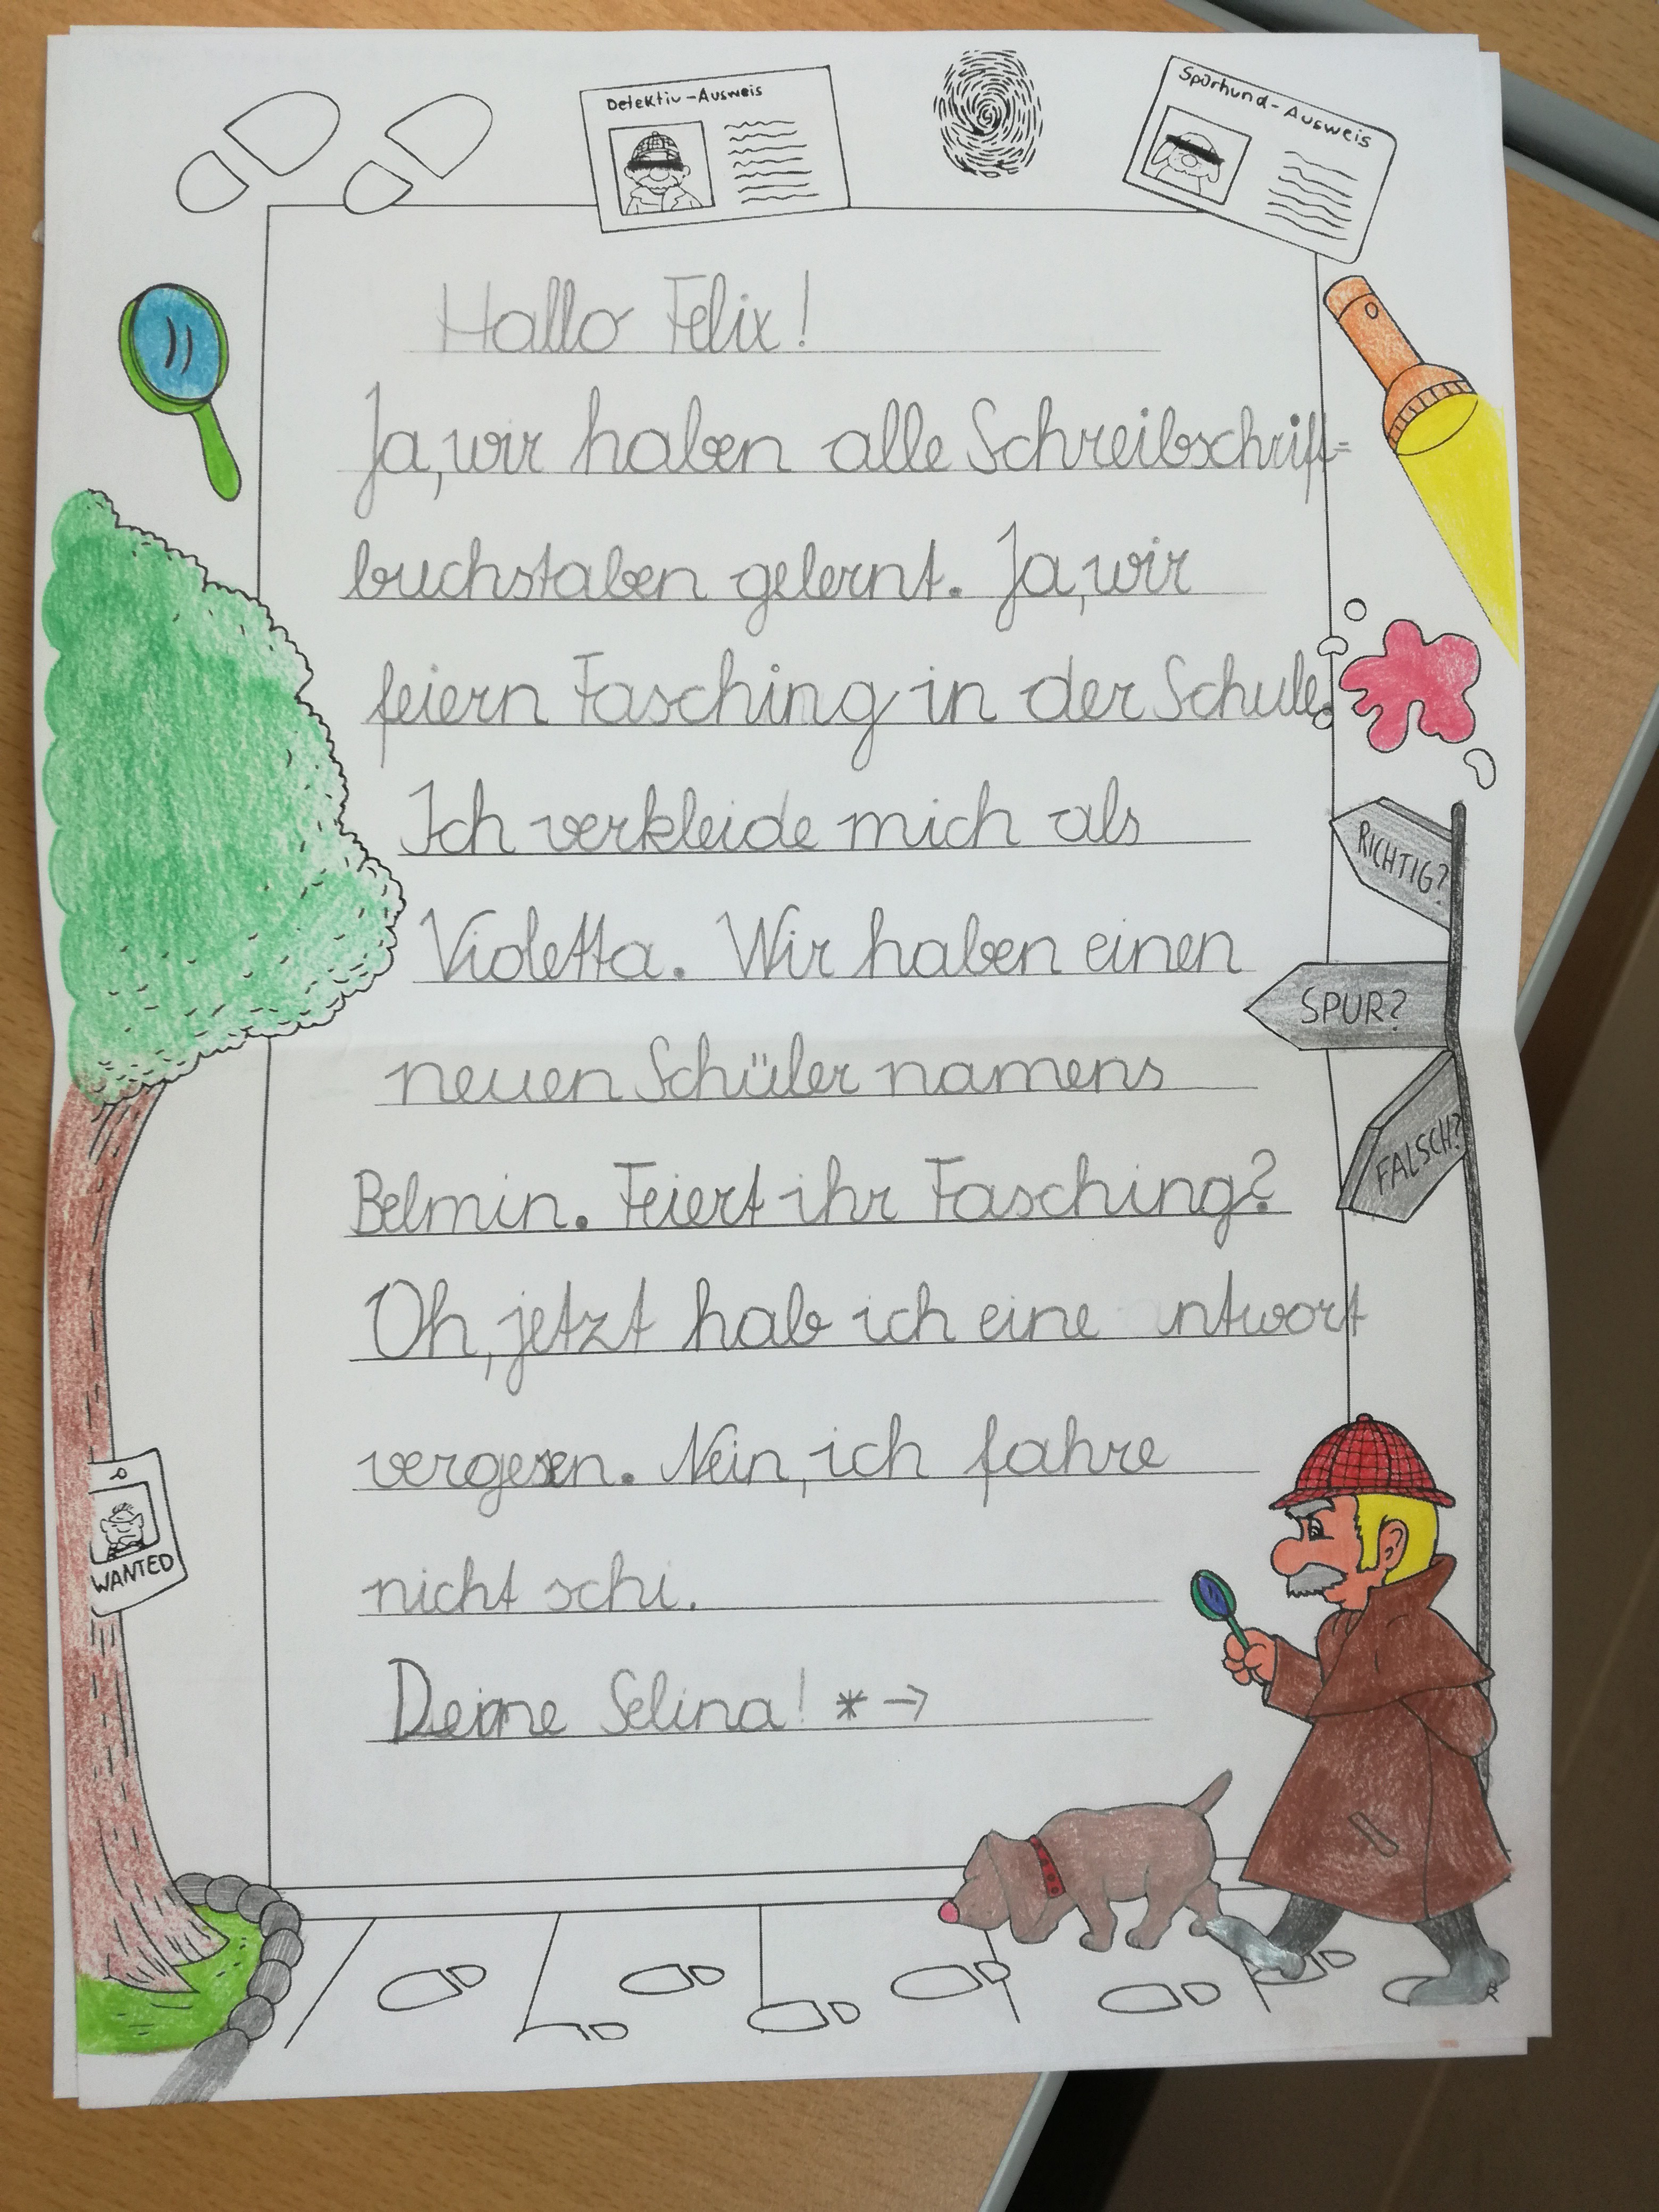 Detektiv-Ausweis
Spürhund-Ausweis
Hallo Felix!
Ja, wir haben alle Schreibschrift=
buchstaben gelernt. Ja, wir
feiern Fasching in der Schule.
Ich verkleide mich als
Violetta. Wir haben einen
neuen Schüler namens
Belmin. Feiert ihr Fasching?
Oh, jetzt hab ich eine ntwort
vergesen. Nein, ich fahre
nicht schi.
Deine Selina! * →
RICHTIG?
SPUR?
FALSCH?
WANTED